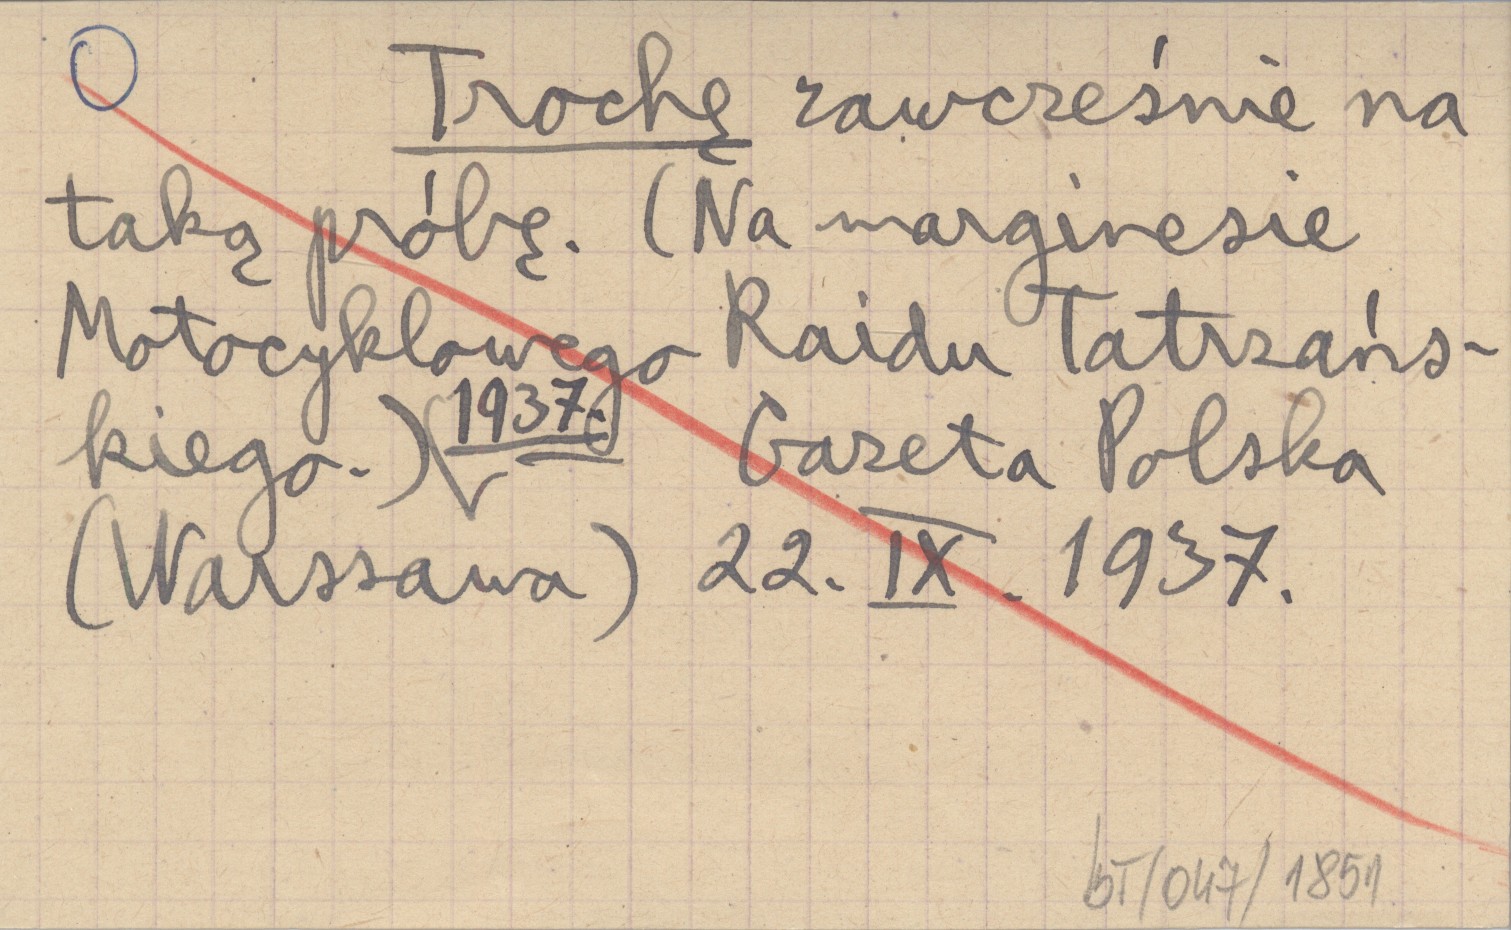 Trochę zawcześnie na
taką próbę. (Na marginesie
Motocyklowego Raidu Tatrzańs-
kiego.) 1937. Gazeta Polska
(Warszawa) 22. IX. 1937.
bT/047/1851